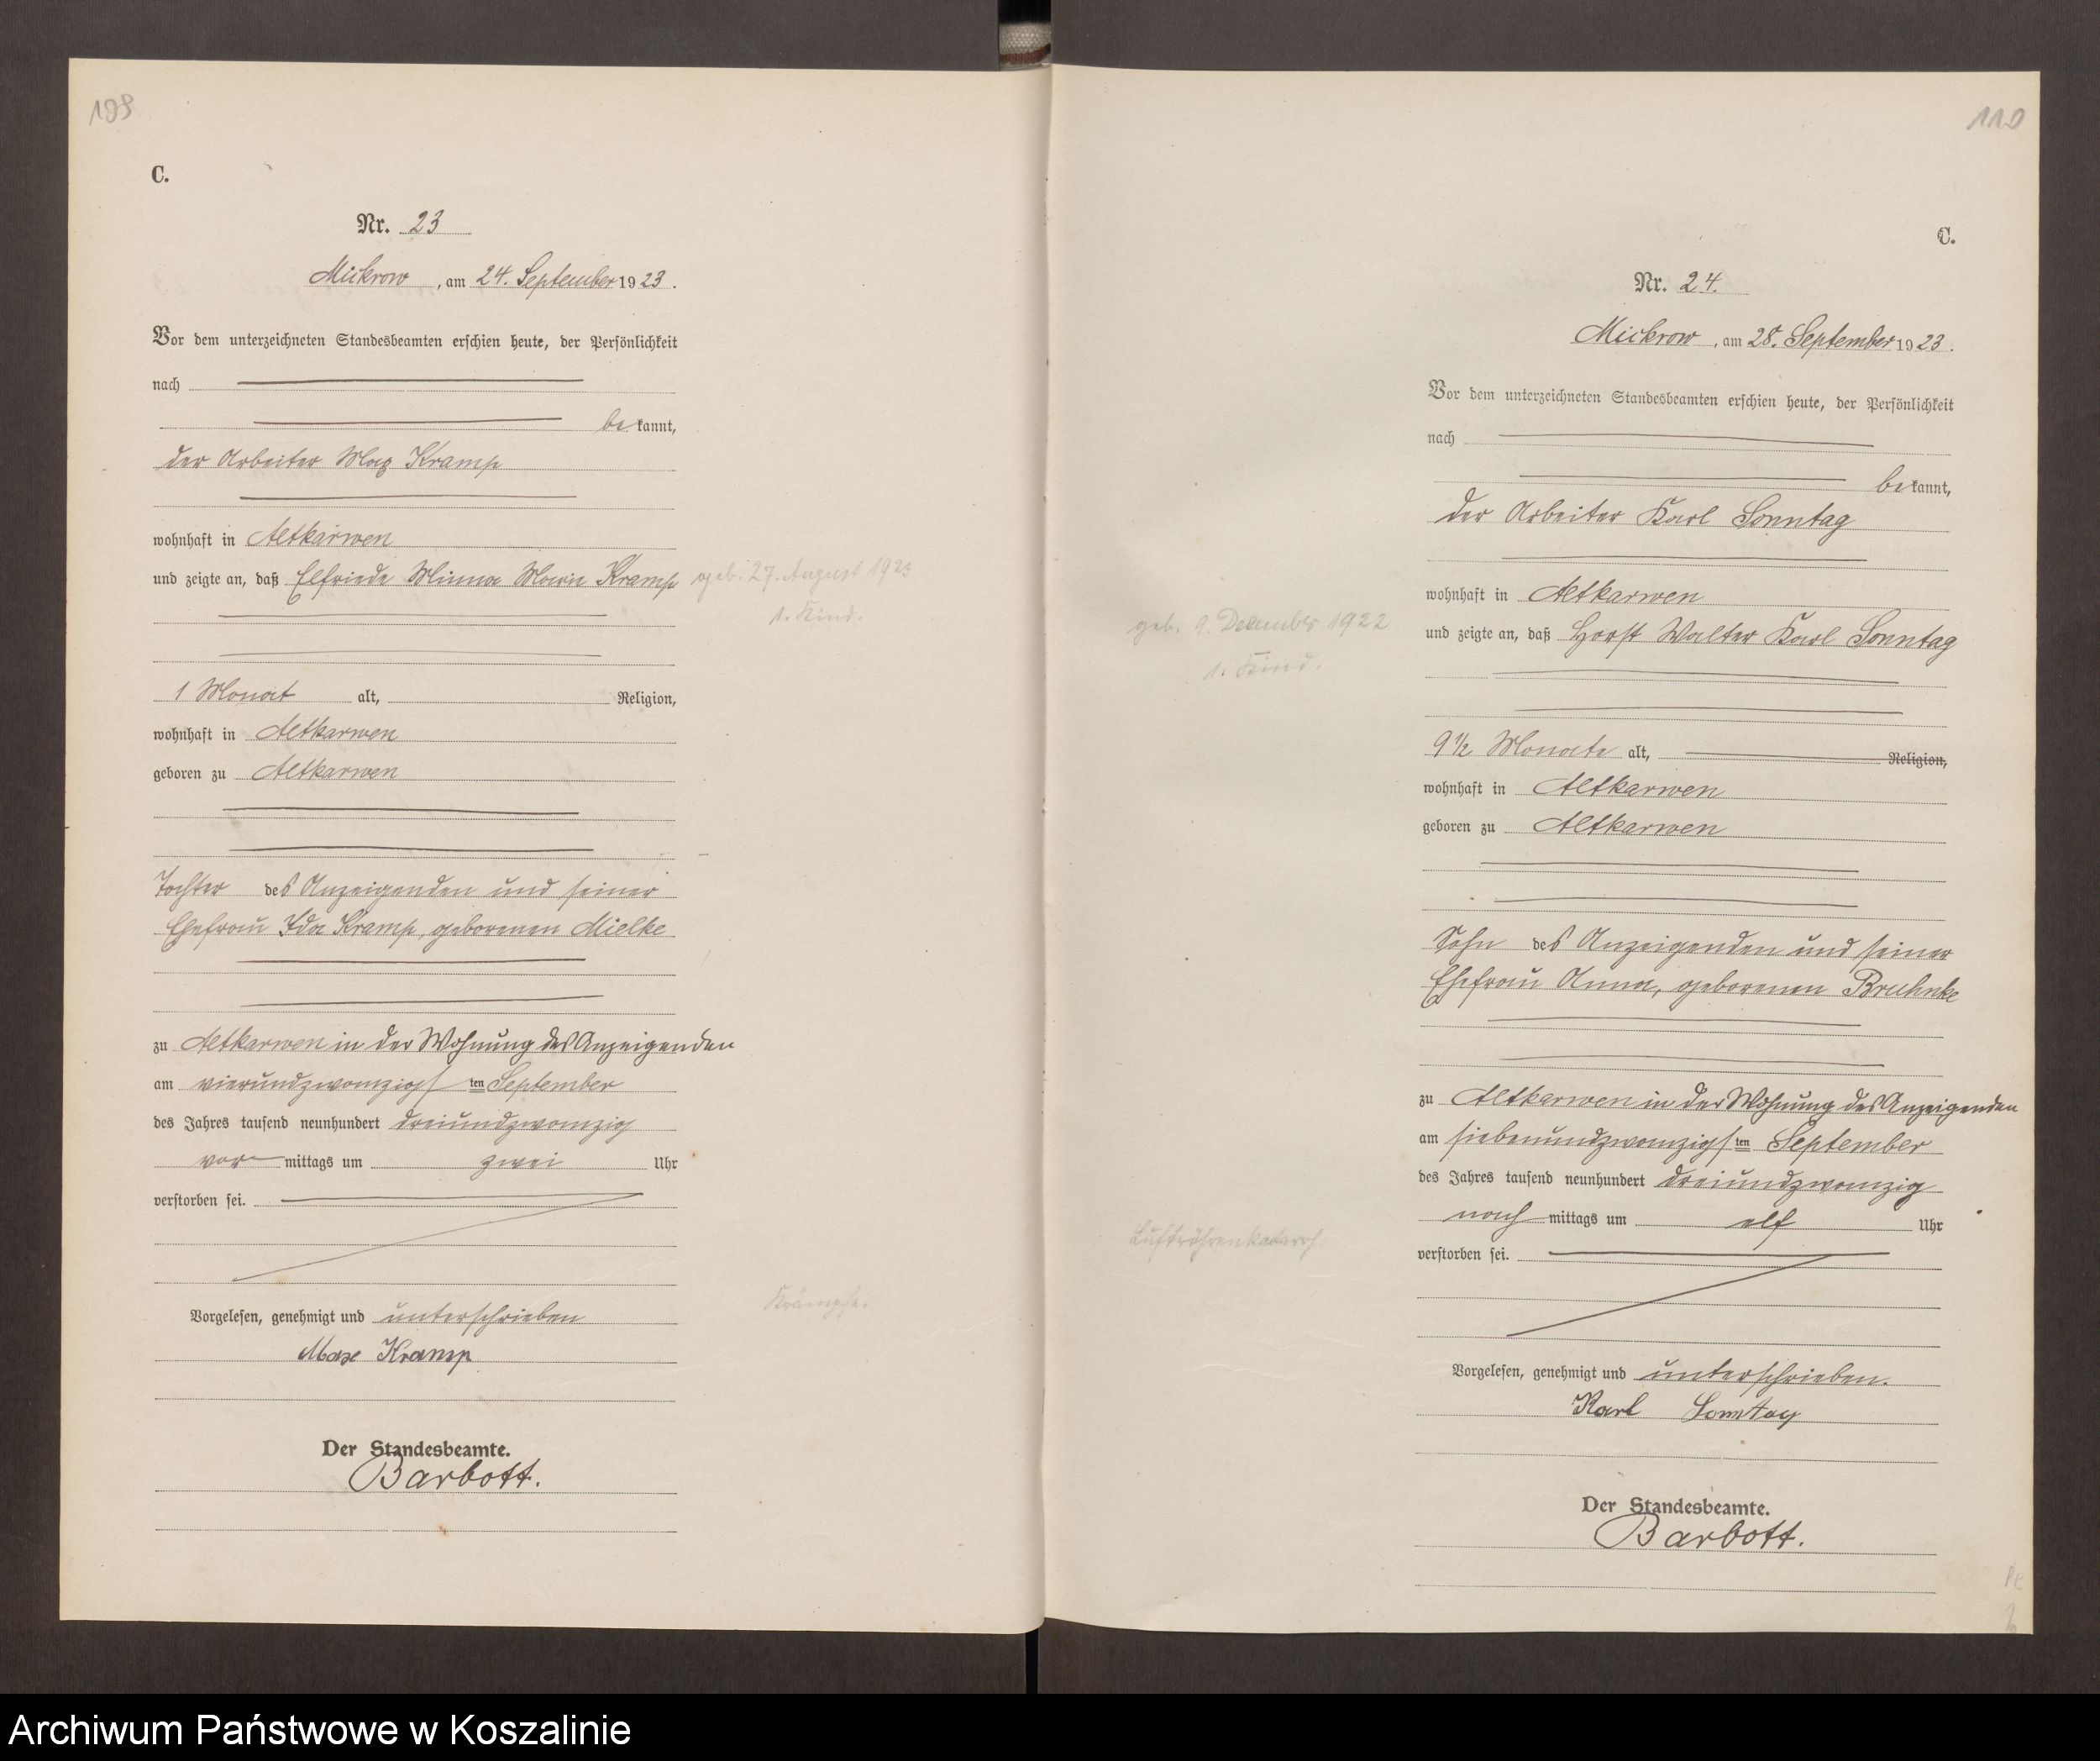 109
C.
Nr. 23
Mickrow, am 24. September 1923.
Vor dem unterzeichneten Standesbeamten erschien heute, der Persönlichkeit
nach
bekannt,
der Arbeiter Max Kramp
wohnhaft in Altkarwen
und zeigte an, daß Elfriede Minna Marie Kramp
geb. 27. August 1923
1. Kind.
1 Monat alt, Religion,
wohnhaft in Altkarwen
geboren zu Altkarwen
Tochter des Anzeigenden und seiner
Ehefrau Ida Kramp, geborenen Mielke
zu Altkarwen in der Wohnung des Anzeigenden
am vierundzwanzigsten September
des Jahres tausend neunhundert dreiundzwanzig
vormittags um zwei Uhr
verstorben sei.
Krämpfe.
Vorgelesen, genehmigt und unterschrieben
Max Kramp
Der Standesbeamte.
Barbott.
110
C.
Nr. 24.
Mickrow, am 28. September 1923.
Vor dem unterzeichneten Standesbeamten erschien heute, der Persönlichkeit
nach
bekannt,
der Arbeiter Karl Sonntag
wohnhaft in Altkarwen
und zeigte an, daß Horst Walter Karl Sonntag
geb. 9. Dezember 1922
1. Kind.
9 1/2 Monate alt, Religion,
wohnhaft in Altkarwen
geboren zu Altkarwen
Sohn des Anzeigenden und seiner
Ehefrau Anna, geborenen Bruhnke
zu Altkarwen in der Wohnung des Anzeigenden
am siebenundzwanzigsten September
des Jahres tausend neunhundert dreiundzwanzig
nachmittags um elf Uhr
verstorben sei.
Luftröhrenkatarrh.
Vorgelesen, genehmigt und unterschrieben.
Karl Sonntag
Der Standesbeamte.
Barbott.
Archiwum Państwowe w Koszalinie